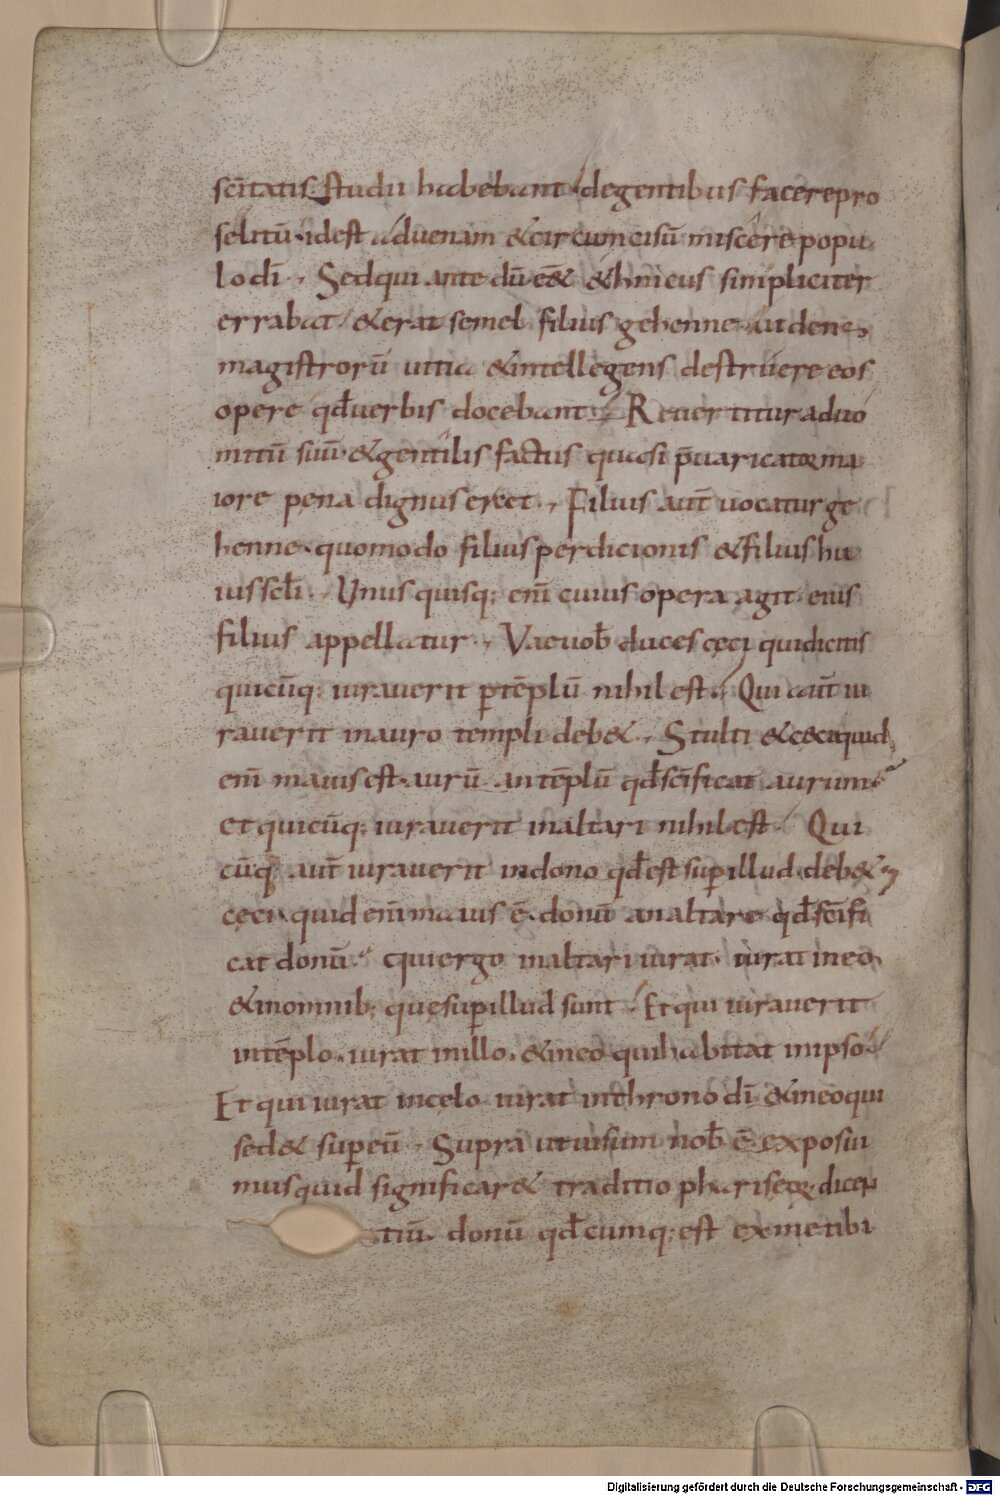 sc̄itatis studii habebant· degentibus facere pro
selitū· idest aduenam &circumcisū miscere popu
lo dī·, Sed qui ante dū e&̄ &hnicus simpliciter
errabat· &erat semel filius gehenne· uidens
magistrorū uitia &intellegens destruere eos
opere qđ uerbis docebant· Reuertitur aduo
mitū suū· &gentilis factus quasi p̄uaricator ma
iore pena dignus er&ct·, Filius aut̄ uocatur ge
henne· quomodo filius perdicionis &filius hu
ius scl̄i· Unus quisq; enī cuius opera agit· eius
filius appellatur·, Vae uob̄ duces cęci qui dicitis
quicūq; iurauerit p̱ tēplū nihil est· Qui aut̄ iu
rauerit inauro templi deb&·, Stulti &cęci quid
enī maius est· aurū· an tēplū qđ sc̄ificat aurum·
et quicūq; iurauerit inaltari nihil est· Qui
cūq; aut̄ iurauerit indono qđ est sup̱ illud· deb&·
cęci· quid enī maius ē· donū an altare qđ sc̄ifi
cat donū· qui ergo inaltari iurat· iurat ineo·
&inomnib; quę sup̱ illud sunt· Et qui iurauerit
intēplo· iurat inillo· &ineo qui habitat inipso·
Et qui iurat incelo iurat inthrono dī &ineo qui
sed& sup̱ eū·, Supra ut uisum nob̄ ē exposui
mus quid significar& traditio phariseorum· dicen
tiū· donū qđcumq; est ex me tibi
Digitalisierung gefördert durch die Deutsche Forschungsgemeinschaft - DFG